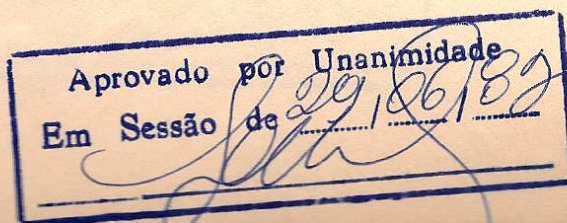 Aprovado por Unanimidade
Em Sessão de 29/06/82